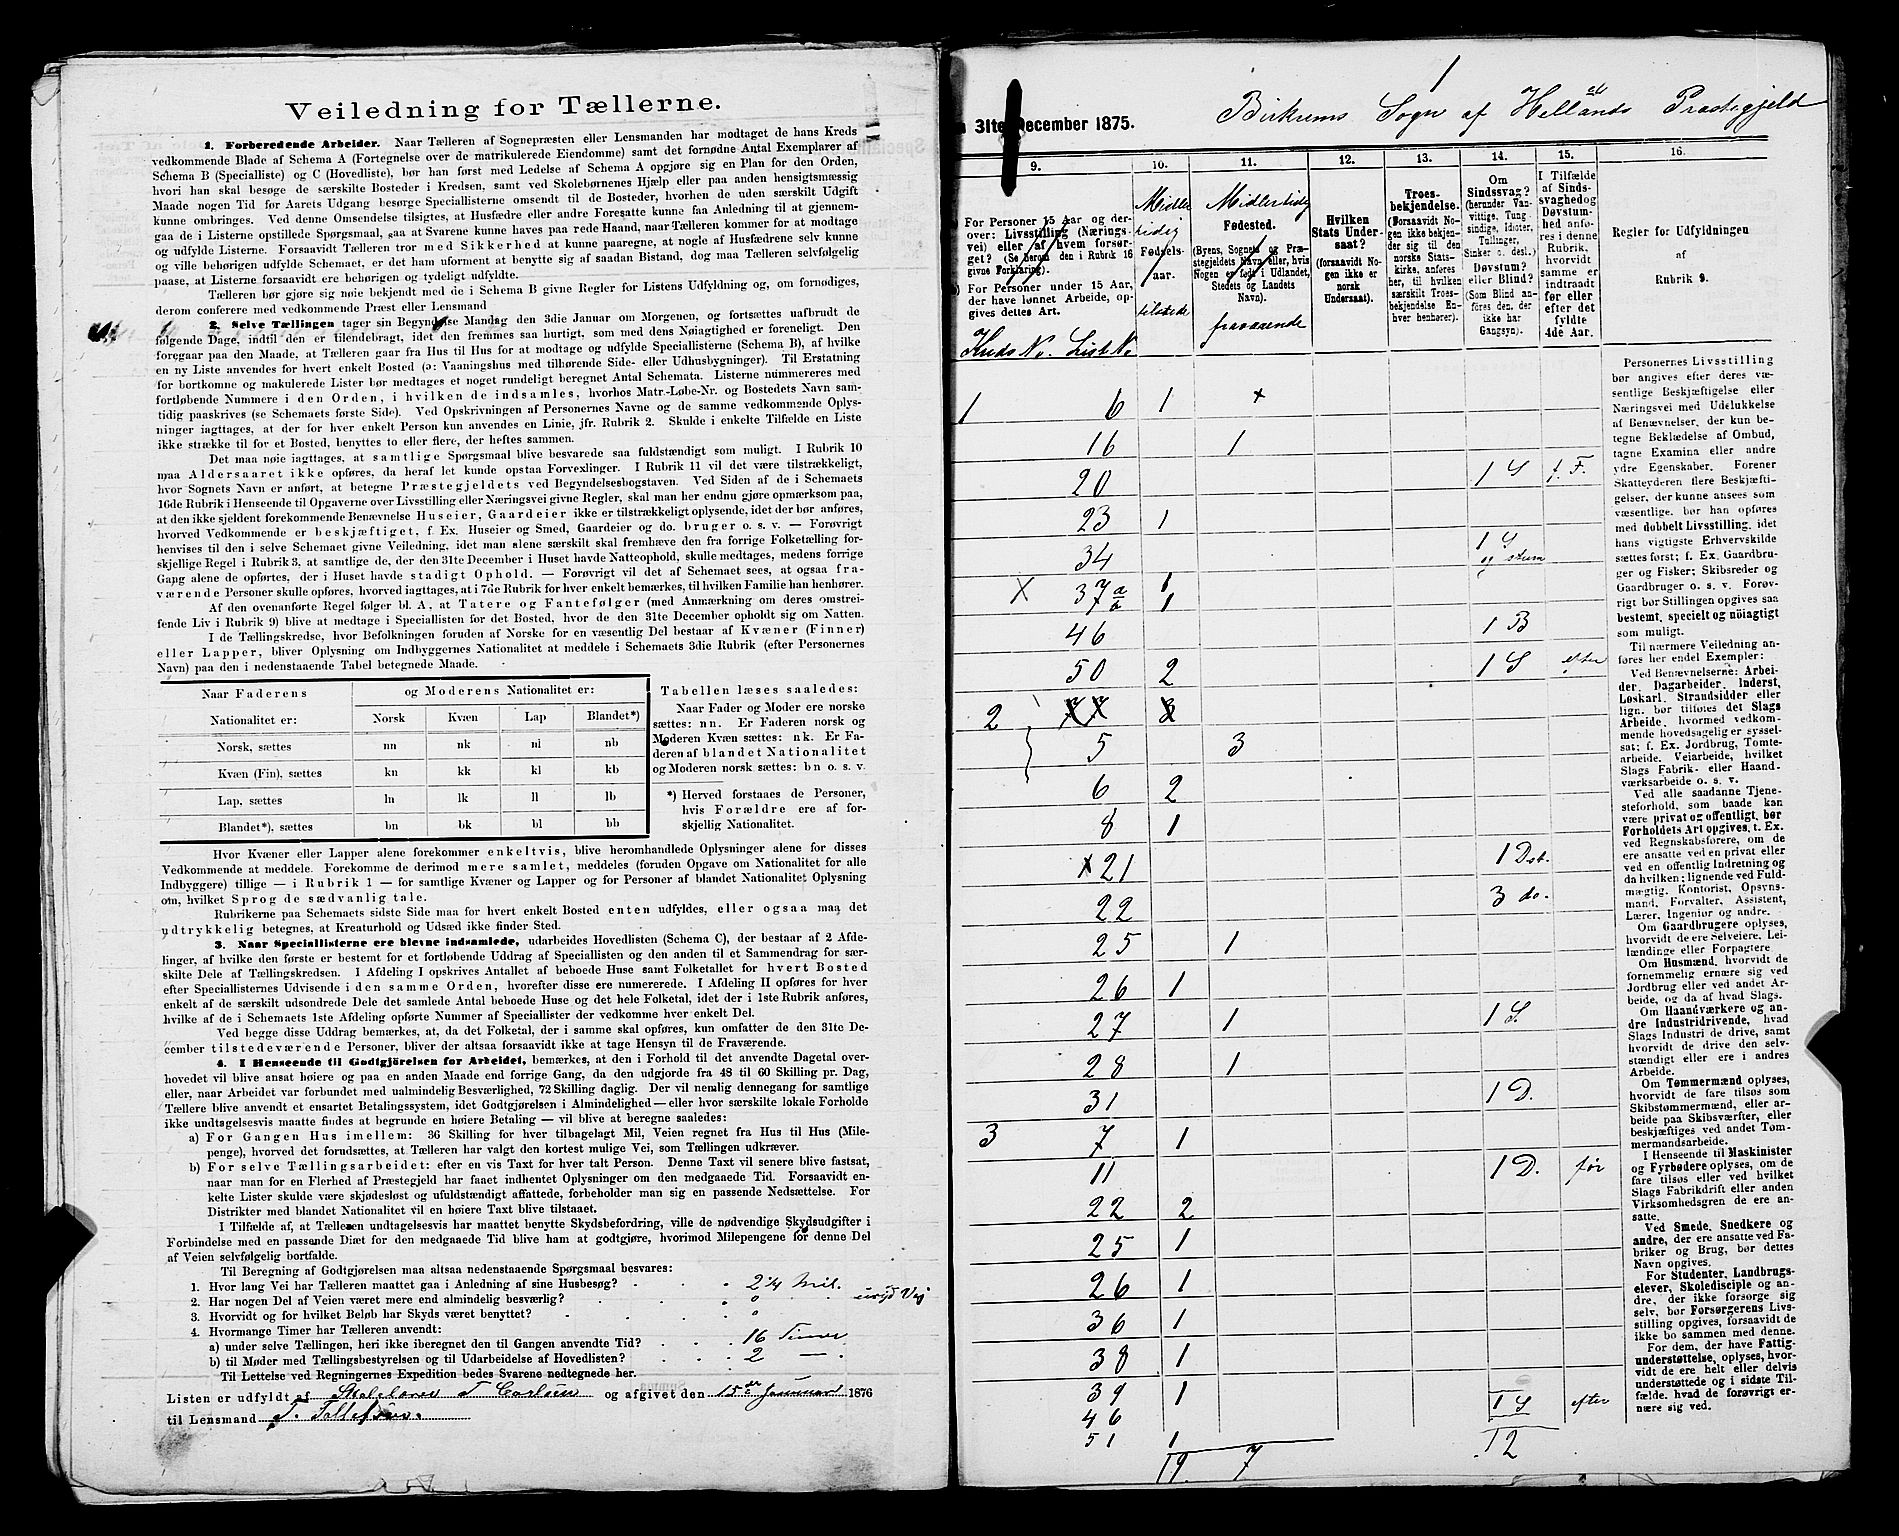 Veiledning for Tællerne.
1. Forberedende Arbeider. Naar Tælleren af Sognepræsten eller Lensmanden har modtaget de hans Kreds
vedkommende Blade af Schema A (Fortegnelse over de matrikulerede Eiendomme) samt det fornødne Antal Exemplarer af
Schema B (Specialliste) og C (Hovedliste), bør han først med Ledelse af Schema A opgjøre sig en Plan for den Orden,
hvori han skal besøge de særskilte Bosteder i Kredsen, samt ved Skolebørnenes Hjælp eller paa anden hensigtsmæssig
Maade nogen Tid før Aarets Udgang besørge Speciallisterne omsendt til de Bosteder, hvorhen de uden særskilt Udgift
kunne ombringes. Ved denne Omsendelse tilsigtes, at Husfædre eller andre Foresatte kunne faa Anledning til at gjennem-
gaa de i Listerne opstillede Spørgsmaal, saa at Svarene kunne haves paa rede Haand, naar Tælleren kommer for at modtage
og udfylde Listerne. Forsaavidt Tælleren tror med Sikkerhed at kunne paaregne, at nogle af Husfædrene selv kunne
og ville behørigen udfylde Schemaet, er det ham uforment at benytte sig af saadan Bistand, dog maa Tælleren selvfølgelig
paase, at Listerne forsaavidt ere behørigen og tydeligt udfyldte.
Tælleren bør gjøre sig nøie bekjendt med de i Schema B givne Regler for Listens Udfyldning og, om fornødiges,
derom conferere med vedkommende Præst eller Lensmand
2. Selve Tællingen tager sin Begyndelse Mandag den 3die Januar om Morgenen, og fortsættes uafbrudt de
følgende Dage, indtil den er tilendebragt, idet den fremmes saa hurtigt, som med dens Nøiagtighed er foreneligt. Den
foregaar paa den Maade, at Tælleren gaar fra Hus til Hus for at modtage og udfylde Speciallisterne (Schema B), af hvilke
en ny Liste anvendes for hvert enkelt Bosted (ɔ: Vaaningshus med tilhørende Side- eller Udhusbygninger). Til Erstatning
for bortkomne og makulerede Lister bør medtages et noget rundeligt beregnet Antal Schemata. Listerne nummereres med
fortløbende Nummere i den Orden, i hvilken de indsamles, hvorhos Matr.-Løbe-Nr. og Bostedets Navn sam-
tidig paaskrives (se Schemaets første Side). Ved Opskrivningen af Personernes Navne og de samme vedkommende Oplys-
ninger iagttages, at der for hver enkelt Person kun anvendes en Linie, jfr. Rubrik 2. Skulde i enkelte Tilfælde en Liste
ikke strække til for et Bosted, benyttes to eller flere, der heftes sammen.
Det maa nøie iagttages, at samtlige Spørgsmaal blive besvarede saa fuldstændigt som muligt. I Rubrik 10
maa Aldersaaret ikke opføres, da heraf let kunde opstaa Forvexlinger. I Rubrik 11 vil det være tilstrækkeligt,
hvor Sognets Navn er anført, at betegne Præstegjeldets ved Begyndelsesbogstaven. Ved Siden af de i Schemaets
16de Rubrik i Henseende til Opgaverne over Livsstilling eller Næringsvei givne Regler, skal man her endnu gjøre opmærksom paa,
at den ikke sjeldent forekommende Benævnelse Huseier, Gaardeier ikke er tilstrækkeligt oplysende, idet der bør anføres,
hvorved Vedkommende er beskjæftiget, f Ex. Huseier og Smed, Gaardeier og do. bruger o. s. v. — Forøvrigt
henvises til den i selve Schemaet givne Veiledning, idet man alene særskilt skal fremhæve den fra forrige Folketælling for-
skjellige Regel i Rubrik 3, at samtlige de, der den 31te December i Huset havde Natteophold, skulle medtages, medens forrige
Gang alene de opførtes, der i Huset havde stadigt Ophold. — Forøvrigt vil det af Schemaet sees, at ogsaa fra-
værende Personer skulle opføres, hvorved iagttages, at i 7de Rubrik for hver enkelt bemærkes, til hvilken Familie han henhører.
Af den ovenanførte Regel følger bl. A, at Tatere og Fantefølger (med Anmærkning om deres omstrei-
fende Liv i Rubrik 9) blive at medtage i Speciallisten for det Bosted, hvor de den 31te December opholdt sig om Natten.
I de Tællingskredse, hvor Befolkningen foruden af Norske for en væsentlig Del bestaar af Kvæner (Finner)
eller Lapper, bliver Oplysning om Indbyggernes Nationalitet at meddele i Schemaets 3die Rubrik (efter Personernes
Navn) paa den i nedenstaaende Tabel betegnede Maade.
Naar Faderens og Moderens Nationalitet er:
Nationalitet er: Norsk Kvæn Lap Blandet*)
Norsk, sættes nn nk nl nb
Kvæn (Fin), sættes kn kk kl kb
Lap, sættes ln lk ll lb
Blandet*), sættes bn bk bl bb
Tabellen læses saaledes:
Naar Fader og Moder ere norske
sættes: nn. Er Faderen norsk og
Moderen Kvæn sættes: nk. Er Fa-
deren af blandet Nationalitet
og Moderen norsk sættes: bn o. s. v.
*) Herved forstaaes de Personer,
hvis Forældre ere af for-
skjellig Nationalitet.
Hvor Kvæner eller Lapper alene forekommer enkeltvis, blive heromhandlede Oplysninger alene for disses
Vedkommende at meddele. Forekomme de derimod mere samlet, meddeles (foruden Opgave om Nationalitet for alle
Indbyggere) tillige — i Rubrik 1 — for samtlige Kvæner og Lapper og for Personer af blandet Nationalitet Oplysning
om, hvilket Sprog de sædvanlig tale.
Rubrikerne paa Schemaets sidste Side maa for hvert enkelt Bosted enten udfyldes, eller ogsaa maa det
udtrykkelig betegnes, at Kreaturhold og Udsæd ikke finder Sted.
3. Naar Speciallisterne ere blevne indsamlede, udarbeides Hovedlisten (Schema C), der bestaar af 2 Afde-
linger, af hvilke den første er bestemt for et fortløbende Uddrag af Speciallisten og den anden til et Sammendrag for sær-
skilte Dele af Tællingskredsen. I Afdeling I opskrives Antallet af beboede Huse samt Folketallet for hvert Bosted
efter Speciallisternes Udvisende i den samme Orden, hvorefter disse ere nummererede. I Afdeling II opføres for hver
enkelt af de særskilt udsondrede Dele det samlede Antal beboede Huse og det hele Folketal, idet der i 1ste Rubrik anføres,
hvilke af de i Schemaets 1ste Afdeling opførte Nummer af Speciallister der vedkomme hver enkelt Del.
Ved begge disse Uddrag bemærkes, at, da det Folketal, der i samme skal opføres, kun omfatter de den 31te De-
cember tilstedeværende Personer, bliver der altsaa forsaavidt ikke at tage Hensyn til de Fraværende.
4. I Henseende til Godtgjørelsen for Arbeidet, bemærkes, at den i Forhold til det anvendte Dagetal over-
hovedet vil blive ansat høiere og paa en anden Maade end forrige Gang, da den udgjorde fra 48 til 60 Skilling pr. Dag,
eller, naar Arbeidet var forbundet med ualmindelig Besværlighed, 72 Skilling daglig. Der vil nemlig dennegang for samtlige
Tællere blive anvendt et ensartet Betalingssystem, idet Godtgjørelsen i Almindelighed — eller hvor særskilte lokale Forholde
ikke undtagelsesvis maatte findes at begrunde en høiere Betaling — vil blive at beregne saaledes:
a) For Gangen Hus imellem: 36 Skilling for hver tilbagelagt Mil, Veien regnet fra Hus til Hus (Mile-
penge), hvorved det forudsættes, at Tælleren har valgt den kortest mulige Vei, som Tællingen udkræver.
b) For selve Tællingsarbeidet: efter en vis Taxt for hver talt Person. Denne Taxt vil senere blive fastsat,
naar man for en Flerhed af Præstegjeld har faaet indhentet Oplysninger om den medgaaede Tid. Forsaavidt en-
kelte Lister skulde være skjødesløst og ufuldstændigt affattede, forbeholder man sig en passende Nedsættelse. For
Distrikter med blandet Nationalitet vil en høiere Taxt blive tilstaaet.
I Tilfælde af, at Tælleren undtagelsesvis har maattet benytte Skydsbefordring, ville de nødvendige Skydsudgifter i
Forbindelse med en passende Diæt for den medgaaede Tid blive ham at godtgjøre, hvorimod Milepengene for denne Del
af Veien selvfølgelig bortfalde.
Til Beregning af Godtgjørelsen maa altsaa nedenstaaende Spørgsmaal besvares:
1. Hvor lang Vei har Tælleren maattet gaa i Anledning af sine Husbesøg? 2 1/4 Mil.
2. Har nogen Del af Veien været mere end almindelig besværlig? 0
3. Hvorvidt og for hvilket Beløb har Skyds været benyttet? 0
4. Hvormange Timer har Tælleren anvendt:
a) under selve Tællingen, heri ikke iberegnet den til Gangen anvendte Tid? 16 Timer
b) til Møder med Tællingsbestyrelsen og til Udarbeidelse af Hovedlisten? 2 —
Til Lettelse ved Regningernes Expedition bedes Svarene nedtegnede her.
Listen er udfyldt af Skolelærer T Carlsen og afgivet den 15de Januar 1876
til Lensmand T. Tollefsen.
1
Birkrems Sogn af Hellands Præstegjeld
31te December 1875.
9. 10. 11. 12. 13. 14. 15. 16.
For Personer 15 Aar og der-
over: Livsstilling (Nærings-
vei) eller af hvem forsør-
get? (Se herom den i Rubrik 16
givne Forklaring).
For Personer under 15 Aar,
der have lønnet Arbeide, op-
gives dettes Art.
Kreds No. Liste No.
Midler
tidig
Fødsels-
aar.
tilstede
Midlertidig
Fødested.
(Byens, Sognets og Præ-
stegjeldets Navn eller, hvis
Nogen er født i Udlandet,
Stedets og Landets
Navn).
fraværende
Hvilken
Stats Under-
saat?
(forsaavidt No-
gen ikke er
norsk
Undersaat).
Troes-
bekjendelse.
(Forsaavidt No-
gen ikke bekjen-
der sig til den
norske Stats-
kirke, anføres
her, til hvilken
særskilt Troes-
bekjendelse En-
hver henhører).
Om
Sindssvag?
(herunder Van-
vittige, Tung-
sindige, Idioter,
Tullinger,
Sinker o. desl.)
Døvstum?
eller Blind?
(Som Blind an-
føres den, der
ikke har
Gangsyn).
I Tilfælde
af Sinds-
svaghed og
Døvstum-
hed, anfø-
res i denne
Rubrik,
hvorvidt
samme er
indtraadt
før eller
efter det
fyldte
4de Aar.
Regler for Udfyldningen
af
Rubrik 9.
1 6 1 x
16 1
20 1 S f. F.
23 1
34 1 S
og stum
X 37 a 1
b 1
46 1 B
50 2 1 S efter
2
5 3
6 2
8 1
x 21 1 Dst.
22 3 do.
25 1
26 1
27 1 1 S.
28 1
31 1 D.
3 7 1
11 1 D. før
22 2
25 1
26 1
36 1
38 1
39 1 1 S efter
46
51 1
19. 7 12
Personernes Livsstilling
bør angives efter deres væ-
sentlige Beskjæftigelse eller
Næringsvei med Udelukkelse
af Benævnelser, der kun be-
tegne Beklædelse af Ombud,
tagne Examina eller andre
ydre Egenskaber. Forener
Skatteyderen flere Beskjæfti-
gelser, der kunne ansees som
væsentlige, bør han opføres
med dobbelt Livsstilling, idet
hans vigtigste Erhvervskilde
sættes først; f. Ex. Gaardbru-
ger og Fisker; Skibsreder og
Gaardbruger o. s. v. Forøv-
rigt bør Stillingen opgives saa
bestemt, specielt og nøiagtigt
som muligt.
Til nærmere Veiledning an-
føres her endel Exempler:
Ved Benævnelserne: Arbei-
der, Dagarbeider, Inderst,
Løskarl, Strandsidder eller
lign. bør tilføies det Slags
Arbeide, hvormed vedkom-
mende hovedsagelig er syssel-
sat; f. Ex. Jordbrug, Tomte-
arbeide, Veiarbeide, hvilket
Slags Fabrik- eller Haand-
værksarbeide o. s. v.
Ved alle saadanne Tjene-
steforhold, som baade kan
være privat og offentligt, bør
Forholdets Art opgives, t. Ex.
ved Regnskabsførere, om de
ere ansatte ved en privat eller
ved en offentlig Indretning og
da hvilken; lignende ved Fuld-
mægtig, Kontorist, Opsyns-
mand, Forvalter, Assistent,
Lærer, Ingeniør og andre.
Om Gaardbrugere oplyses,
hvorvidt de ere Selveiere, Lei-
lændinge eller Forpagtere.
Om Husmænd, hvorvidt de
fornemmelig ernære sig ved
Jordbrug eller ved andet Ar-
beide, og da af hvad Slags.
Om Haandværkere og an-
dre Industridrivende, hvad
Slags Industri de drive, samt
hvorvidt de drive den selv-
stændigt eller ere i andres
Arbeide.
Om Tømmermænd oplyses,
hvorvidt de fare tilsøs som
Skibstømmermænd, eller ar-
beide paa Skibsværfter, eller
beskjæftiges ved andet Tøm-
mermandsarbeide.
I Henseende til Maskinister
og Fyrbødere oplyses, om de
fare tilsøs eller ved hvilket
Slags Fabrikdrift eller anden
Virksomhedsgren de ere an-
satte.
Ved Smede, Snedkere og
andre, der ere ansatte ved Fa-
briker og Brug, bør dettes
Navn opgives.
For Studenter, Landbrugs-
elever, Skoledisciple og an-
dre, der ikke forsørge sig
selv, bør Forsørgerens Livs-
stilling opgives, forsaavidt de
ikke bo sammen med denne.
For dem, der have Fattig-
understøttelse, oplyses, hvor-
vidt de ere helt eller delvis
understøttede og i sidste Til-
fælde, hvad de forøvrigt er-
nære sig ved.